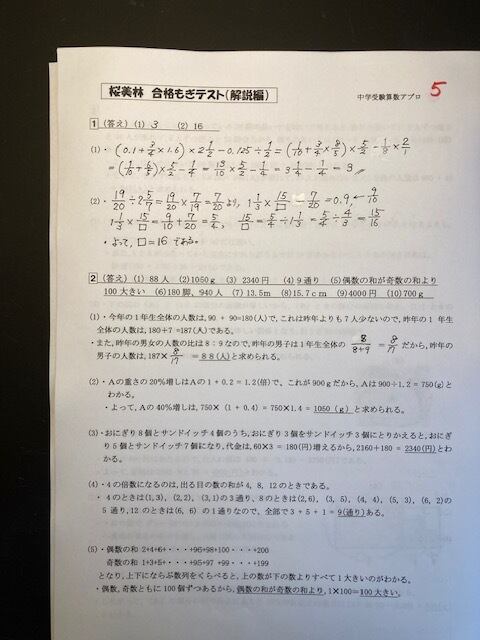 桜美林 合格もぎテスト(解説編)
中学受験算数アプロ
5
1 (答え) (1) 3 (2) 16
(1)・ (0.1+3/4×1.6)×2 1/2-0.125÷1/2=(1/10+3/4×8/5)×5/2-1/8×2/1
=(1/10+6/5)×5/2-1/4=13/10×5/2-1/4=3 1/4-1/4=3
(2)・ 19/20÷2 5/7=19/20×7/19=7/20より, 1 1/3×15/□-7/20=0.9, 9/10
1 1/3×15/□=9/10+7/20=5/4, 15/□=5/4÷1 1/3=5/4×3/4=15/16
・よって, □=16 である。
2 (答え) (1) 88人 (2)1050g (3) 2340円 (4) 9通り (5)偶数の和が奇数の和より
100大きい (6)180脚、940人 (7) 13.5m (8)15.7cm (9)4000円 (10)700g
(1)・今年の1年生全体の人数は, 90 + 90=180(人)で, これは昨年よりも7人少ないので, 昨年の1 年生
全体の人数は, 180+7 =187(人)である。
・また, 昨年の男女の人数の比は8:9なので, 昨年の男子は1年生全体の 8/8+9 = 8/17 だから, 昨年の
男子の人数は, 187× 8/17 =88(人)と求められる。
(2)・Aの重さの20%増しはAの1+0.2=1.2(倍)で, これが900gだから, Aは900÷1.2=750(g)と
わかる。
・よって, Aの40%増しは, 750×(1+0.4)=750×1.4=1050(g) と求められる。
(3)・おにぎり8個とサンドイッチ4個のうち, おにぎり3個をサンドイッチ3個にとりかえると, おにぎ
り5個とサンドイッチ7個になり, 代金は, 60×3=180(円)増えるから, 2160+180=2340(円)とわ
かる。
(4)・4の倍数になるのは, 出る目の数の和が4, 8, 12のときである。
・4のときは(1,3), (2,2), (3,1)の3通り, 8のときは(2,6), (3, 5), (4, 4), (5, 3), (6, 2)の
5通り, 12のときは(6, 6) の1通りなので, 全部で3+5+1=9(通り)ある。
(5)・偶数の和 2+4+6+・・・・+96+98+100・・・・+200
奇数の和 1+3+5+・・・・+95+97 +99・・・・+199
となり, 上下にならぶ数列をくらべると, 上の数が下の数よりすべて1大きいのがわかる。
・偶数, 奇数ともに100個ずつあるから, 偶数の和が奇数の和より, 1×100=100大きい。